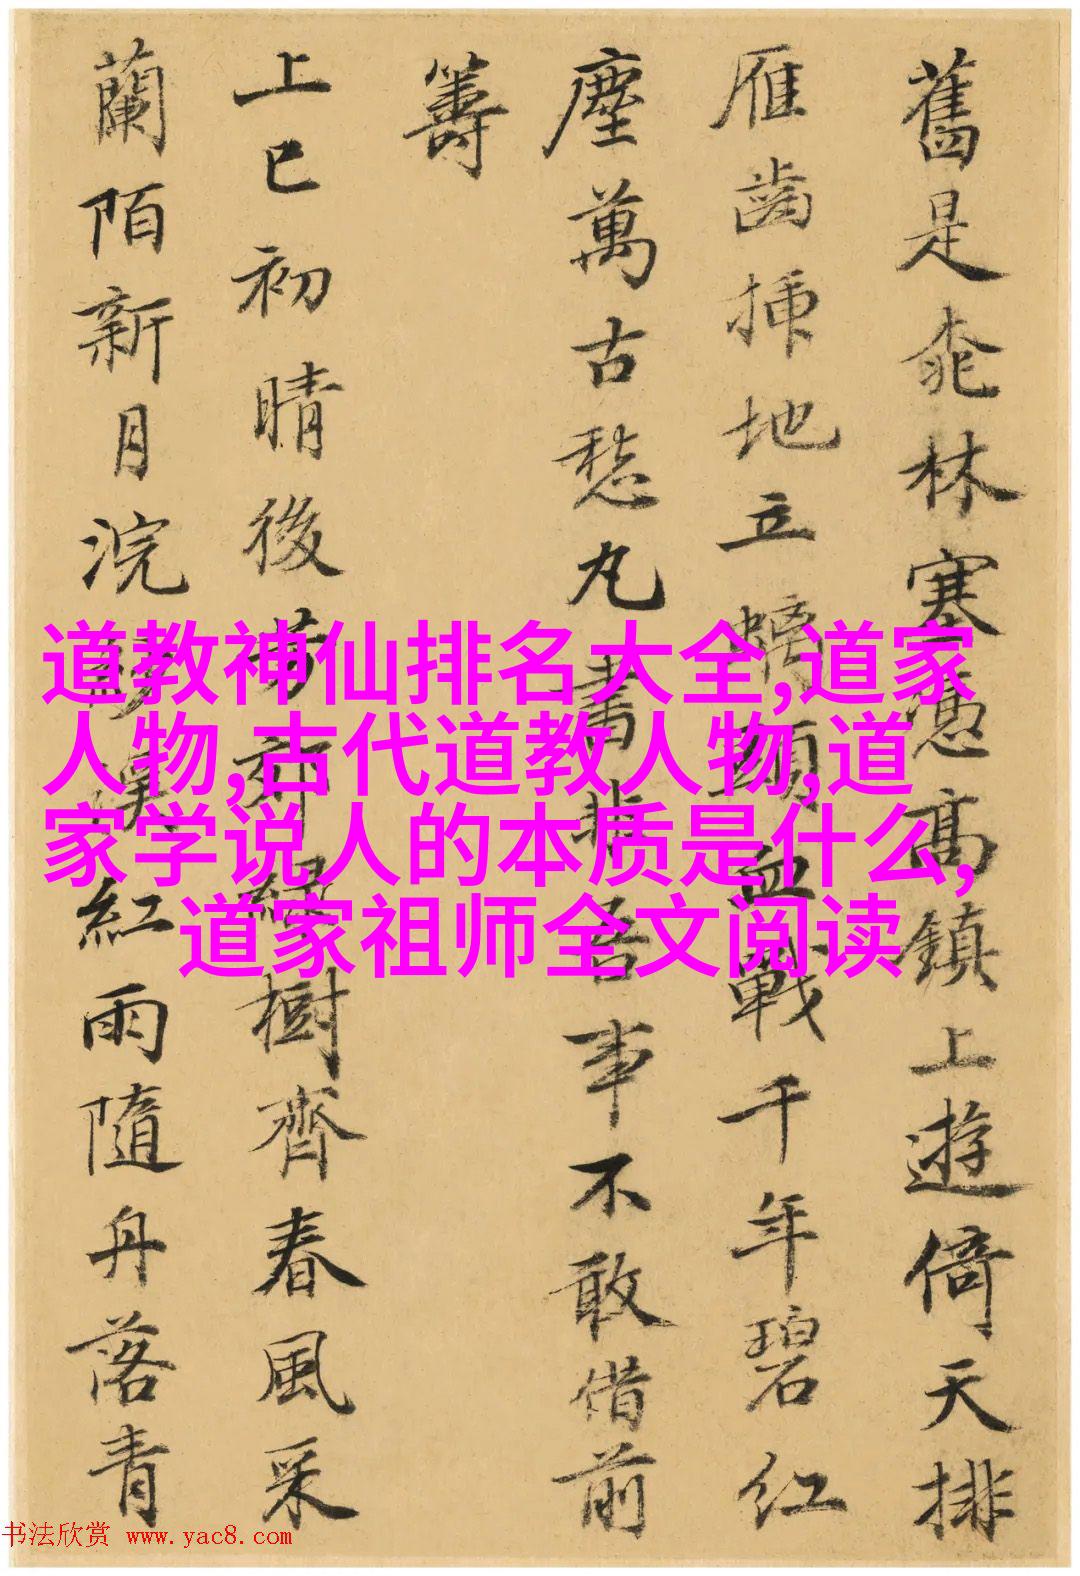 舊是桃林塞憑高鎮上遊倚天排
雁齒插地立螭頭血戰千年碧紅
塵萬古愁丸書非吾事不敢借前
籌
上巳初晴後芳郊綠樹齊春風采
蘭陌新月浣紗溪紅雨隨舟落青
道教神仙排名大全,道家
人物,古代道教人物,道
家学说人的本质是什么,
道家祖师全文阅读
书法欣赏 www.yac8.com